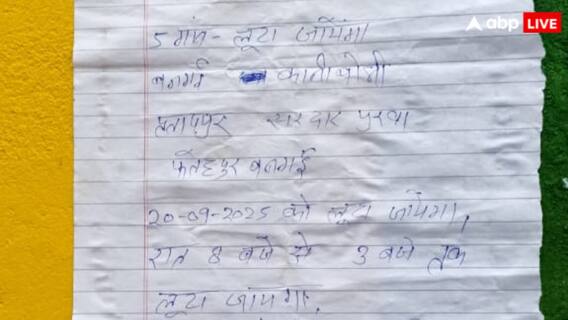 abp LIVE
5 गांव - लूटा जायेगा
बनगई कानीबोझी
प्रतापपुर सरदार पुरवा
फतेहपुर बनगई
20-09-2025 को लूटा जायेगा,
रात 8 बजे से 3 बजे तक
लूटा जायेगा,